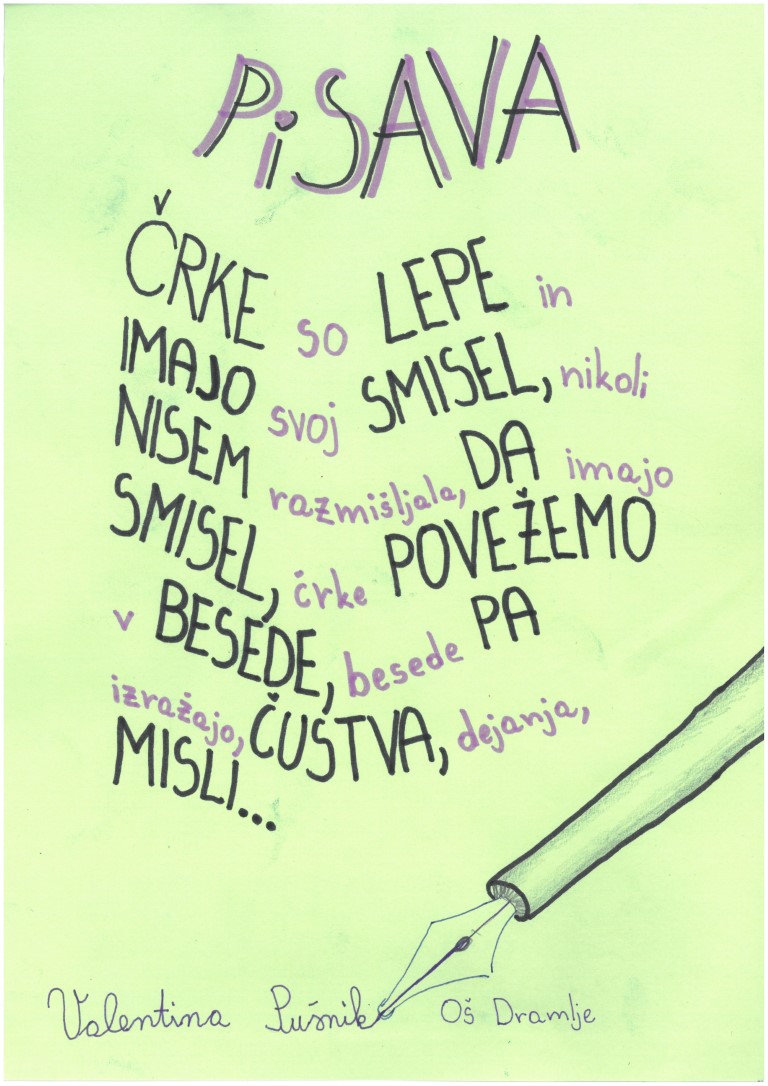 PiSAVA
ČRKE so LEPE in
IMAJO svoj SMISEL, nikoli
NISEM razmišljala, DA imajo
SMISEL, črke POVEŽEMO
v BESEDE, besede PA
izražajo, ČUSTVA, dejanja,
MISLI...
Valentina Pušnik Oš Dramlje